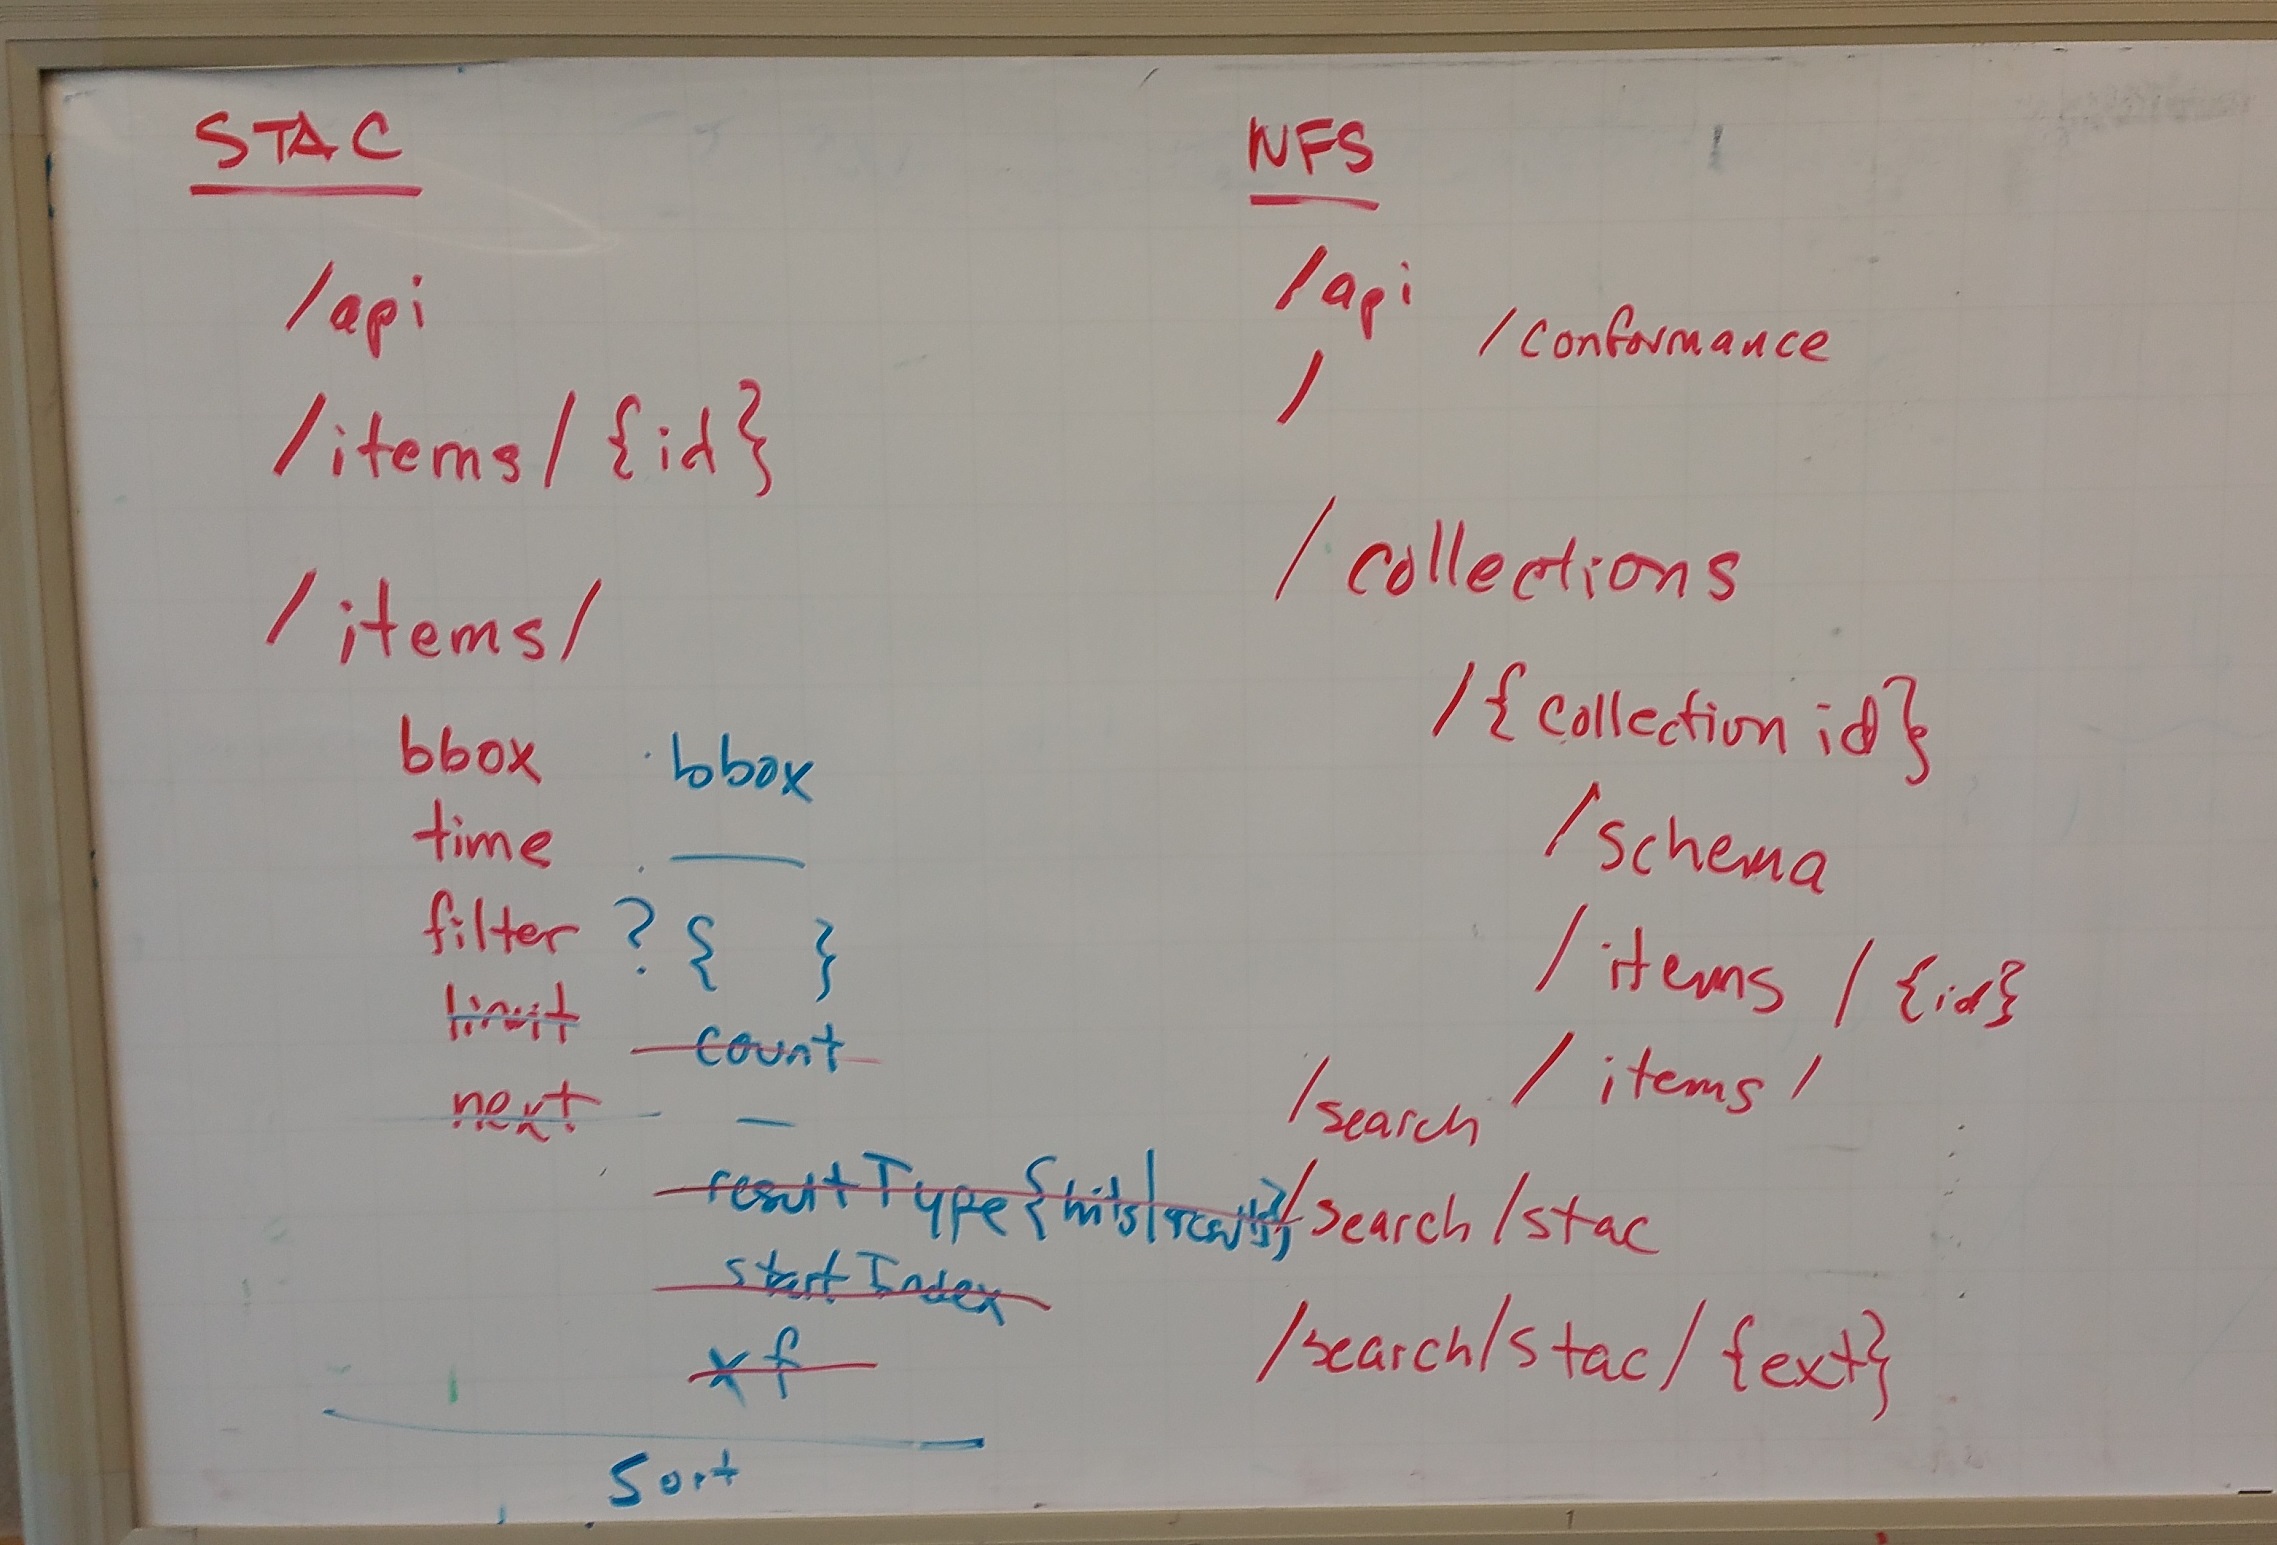 STAC
/api
/items/{id}
/items/
bbox bbox
time —
filter ? { }
limit count
next —
resultType {hits|results}
startIndex
xf
Sort
WFS
/api
/conformance
/
/collections
/{collection id}
/schema
/items/{id}
/items/
/search
/search/stac
/search/stac/{ext}